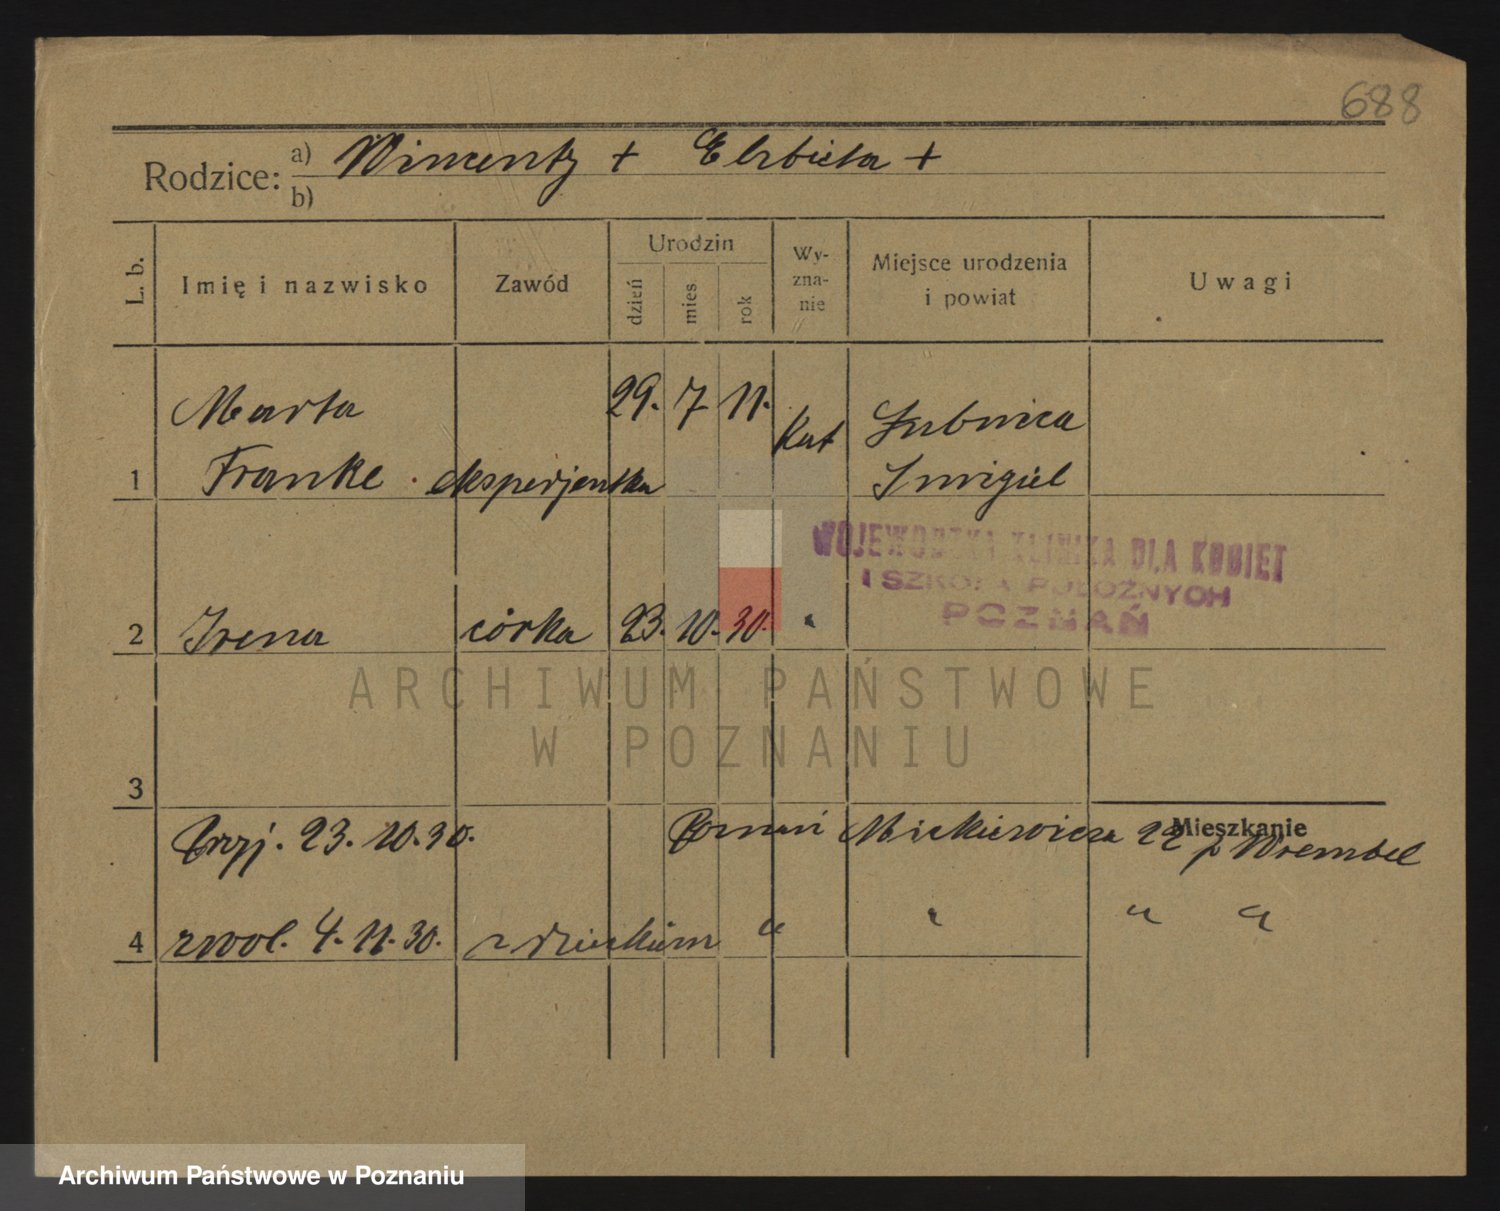 688
Rodzice: a) Wincenty + Elzbieta +
b)
L. b. Imię i nazwisko Zawód Urodzin dzień mies rok Wy-zna-nie Miejsce urodzenia i powiat Uwagi
Marta 29. 7 11. Kat Łubnica
1 Franke ekspedjentka Smigiel
WOJEWÓDZKA KLINIKA DLA KOBIET
I SZKOŁA POŁOŻNYCH
POZNAŃ
2 Irena córka 23. 10. 30. "
ARCHIWUM PAŃSTWOWE
W POZNANIU
3
Mieszkanie
Przyj. 23. 10. 30. Poznań Mickiewicza 22 p Wrembel
4 zwol. 4. 11. 30. z dzieckiem " " " "
Archiwum Państwowe w Poznaniu